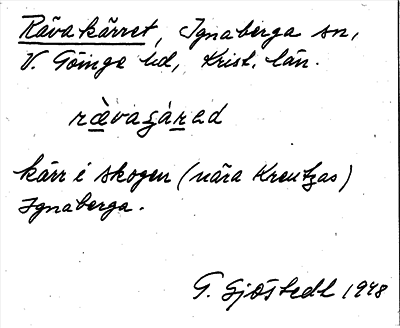 Rävakärret, Ignaberga sn,
V. Göinge hd, Krist. län.
rävagárad
kärr i skogen (nära Kreutzas)
Ignaberga.
G. Sjöstedt 1948